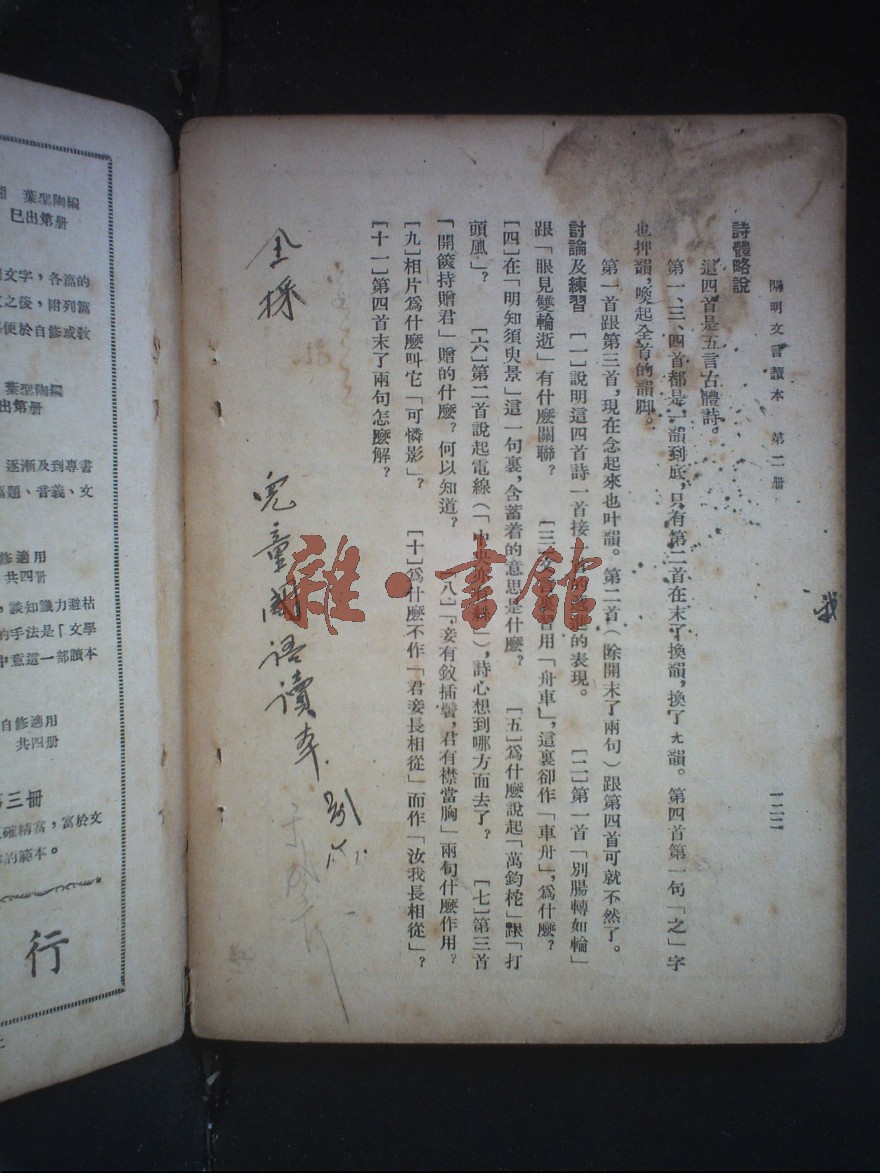 開明文言讀本 第二册
一二二
詩體略說
這四首是五言古體詩。
第一、三、四首都是一韻到底，只有第二首在末了換韻，換了ㄤ韻。第四首第一句「之」字
也押韻，喚起全首的韻脚。
第一首跟第三首，現在念起來也叶韻。第二首（除開末了兩句）跟第四首可就不然了。
討論及練習 〔一〕說明這四首詩一首接一首的
的表現。 〔二〕第一首「別腸轉如輪」
跟「眼見雙輪逝」有什麼關聯？ 〔三〕
用「舟車」，這裏卻作「車舟」，爲什麼？
〔四〕在「明知須臾景」這一句裏，含蓄着的意思是什麼？ 〔五〕爲什麼說起「萬鈞柁」跟「打
頭風」？ 〔六〕第二首說起電線（「中央亦有絲」），詩心想到哪方面去了？ 〔七〕第三首
「開篋持贈君」贈的什麼？何以知道？ 〔八〕「妾有釵插鬢，君有襟當胸」兩句什麼作用？
〔九〕相片爲什麼叫它「可憐影」？ 〔十〕爲什麼不作「君妾長相從」而作「汝我長相從」？
〔十一〕第四首末了兩句怎麼解？
兒童國語讀本
雜·書館
葉聖陶編
已出第册
文字，各篇的
之後，附列篇
便於自修或敎
葉聖陶編
出第册
逐漸及到專書
篇題、音義、文
修適用
共四册
，談知識力避枯
的手法是「文學
中意這一部讀本
自修適用
共四册
第三册
確精當，富於文
的範本。
行